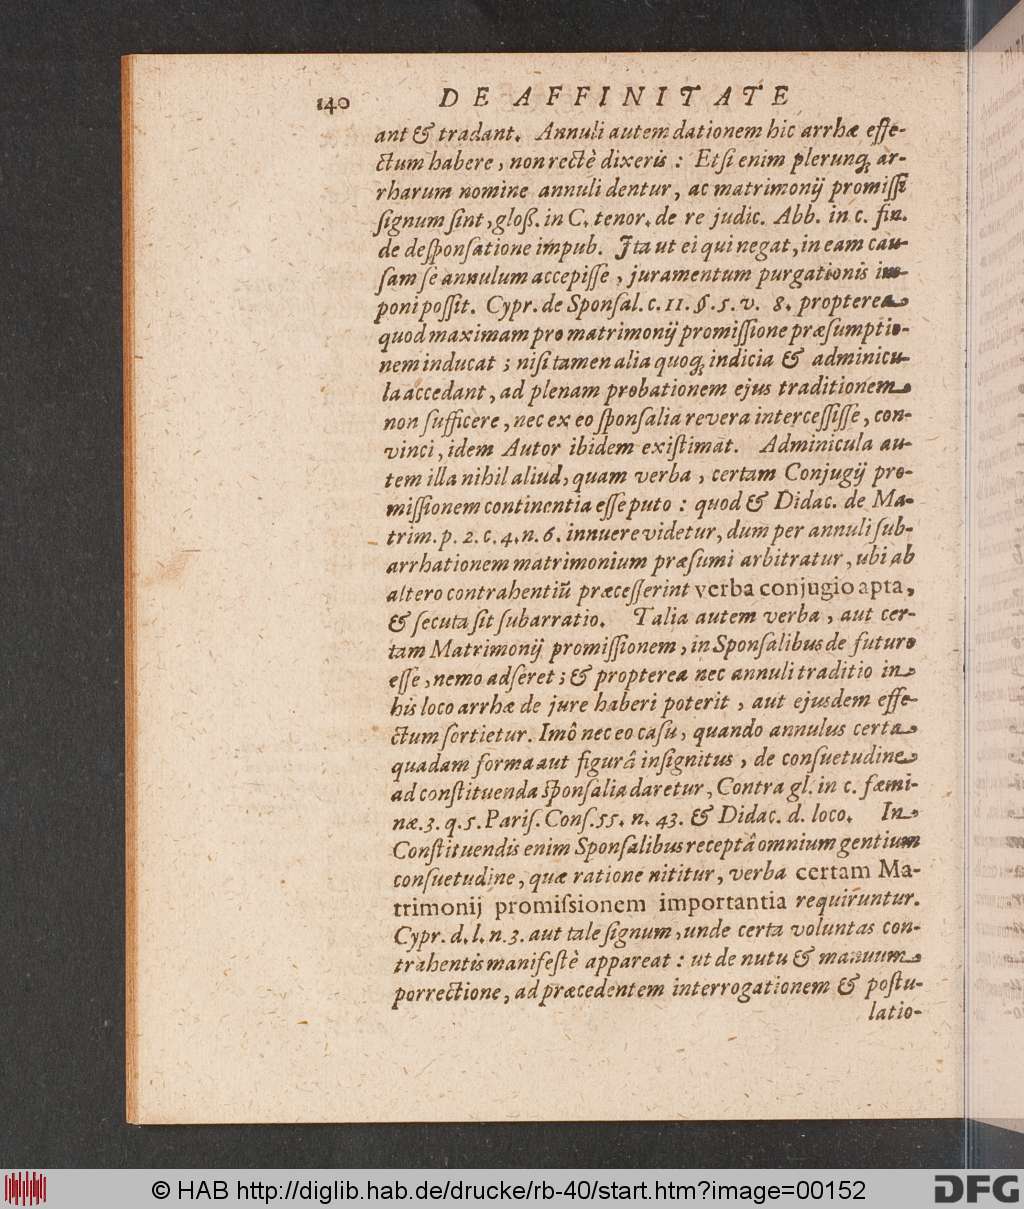 140 DE AFFINITATE
ant & tradant. Annuli autem dationem hic arrhæ effe-
ctum habere, non rectè dixeris : Etsi enim plerunq; ar-
rharum nomine annuli dentur, ac matrimonij promissi
signum sint, gloß. in C. tenor. de re judic. Abb. in c. fin.
de desponsatione impub. Ita ut ei qui negat, in eam cau-
sam se annulum accepisse, juramentum purgationis im-
poni possit. Cypr. de Sponsal. c. 11. §. 5. v. 8. propterea
quod maximam pro matrimonij promissione præsumptio-
nem inducat ; nisi tamen alia quoq; indicia & adminicu-
la accedant, ad plenam probationem ejus traditionem
non sufficere, nec ex eo sponsalia revera intercessisse, con-
vinci, idem Autor ibidem existimat. Adminicula au-
tem illa nihil aliud, quam verba, certam Conjugij pro-
missionem continentia esse puto : quod & Didac. de Ma-
trim. p. 2. c. 4. n. 6. innuere videtur, dum per annuli sub-
arrhationem matrimonium præsumi arbitratur, ubi ab
altero contrahentiũ præcesserint verba conjugio apta,
& secuta sit subarratio. Talia autem verba, aut cer-
tam Matrimonij promissionem, in Sponsalibus de futuro
esse, nemo adseret ; & propterea nec annuli traditio in
his loco arrhæ de jure haberi poterit, aut ejusdem effe-
ctum sortietur. Imô nec eo casu, quando annulus certa
quadam forma aut figurâ insignitus, de consuetudine
ad constituenda sponsalia daretur, Contra gl. in c. fœmi-
næ. 3. q. 5. Paris. Cons. 55. n. 43. & Didac. d. loco. In
Constituendis enim Sponsalibus receptâ omnium gentium
consuetudine, quæ ratione nititur, verba certam Ma-
trimonij promissionem importantia requiruntur.
Cypr. d. l. n. 3. aut tale signum, unde certa voluntas con-
trahentis manifestè appareat : ut de nutu & manuum
porrectione, ad præcedentem interrogationem & postu-
latio-
© HAB http://diglib.hab.de/drucke/rb-40/start.htm?image=00152
DFG